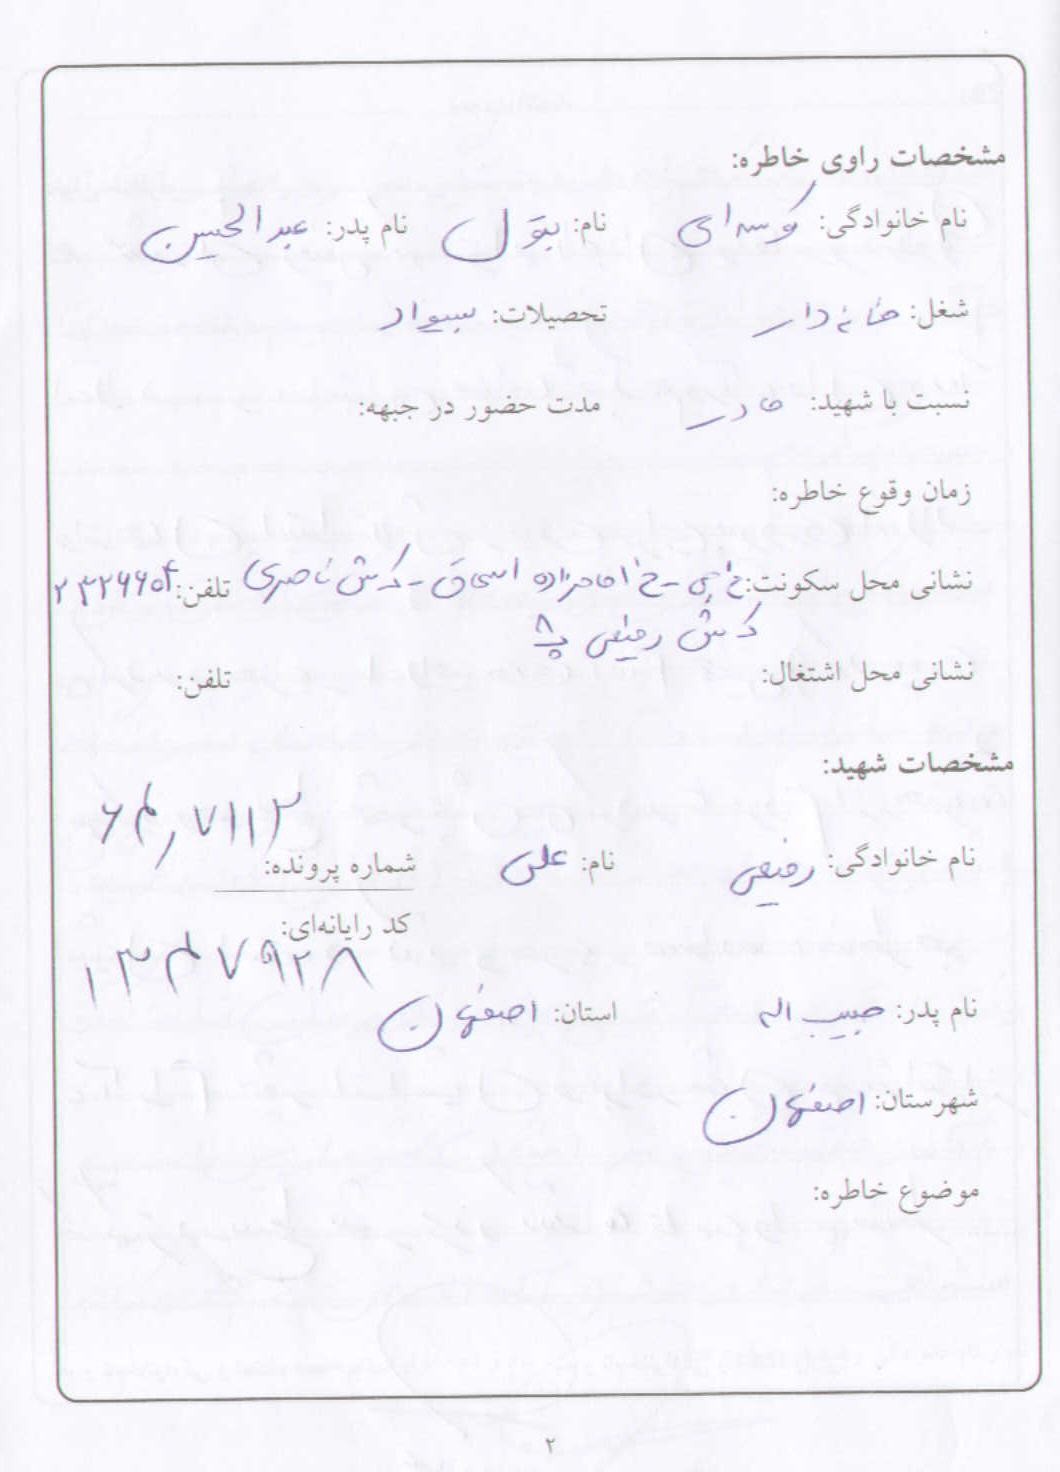 مشخصات راوی خاطره:
نام خانوادگی: کوسه‌ای نام: بتول نام پدر: عبدالحسین
شغل: خانه دار تحصیلات: بیسواد
نسبت با شهید: مادر مدت حضور در جبهه:
زمان وقوع خاطره:
نشانی محل سکونت: خ جی - خ امامزاده اسحاق - کوش ناصری تلفن: ۲۳۲۹۶۵۴
رفیعی پ ۸
نشانی محل اشتغال: تلفن:
مشخصات شهید:
نام خانوادگی: رفیعی نام: علی شماره پرونده: ۶۴٫۷۱۱۲
کد رایانه‌ای: ۱۰۳۴۷۹۲۸
نام پدر: حبیب اله استان: اصفهان
شهرستان: اصفهان
موضوع خاطره:
۲